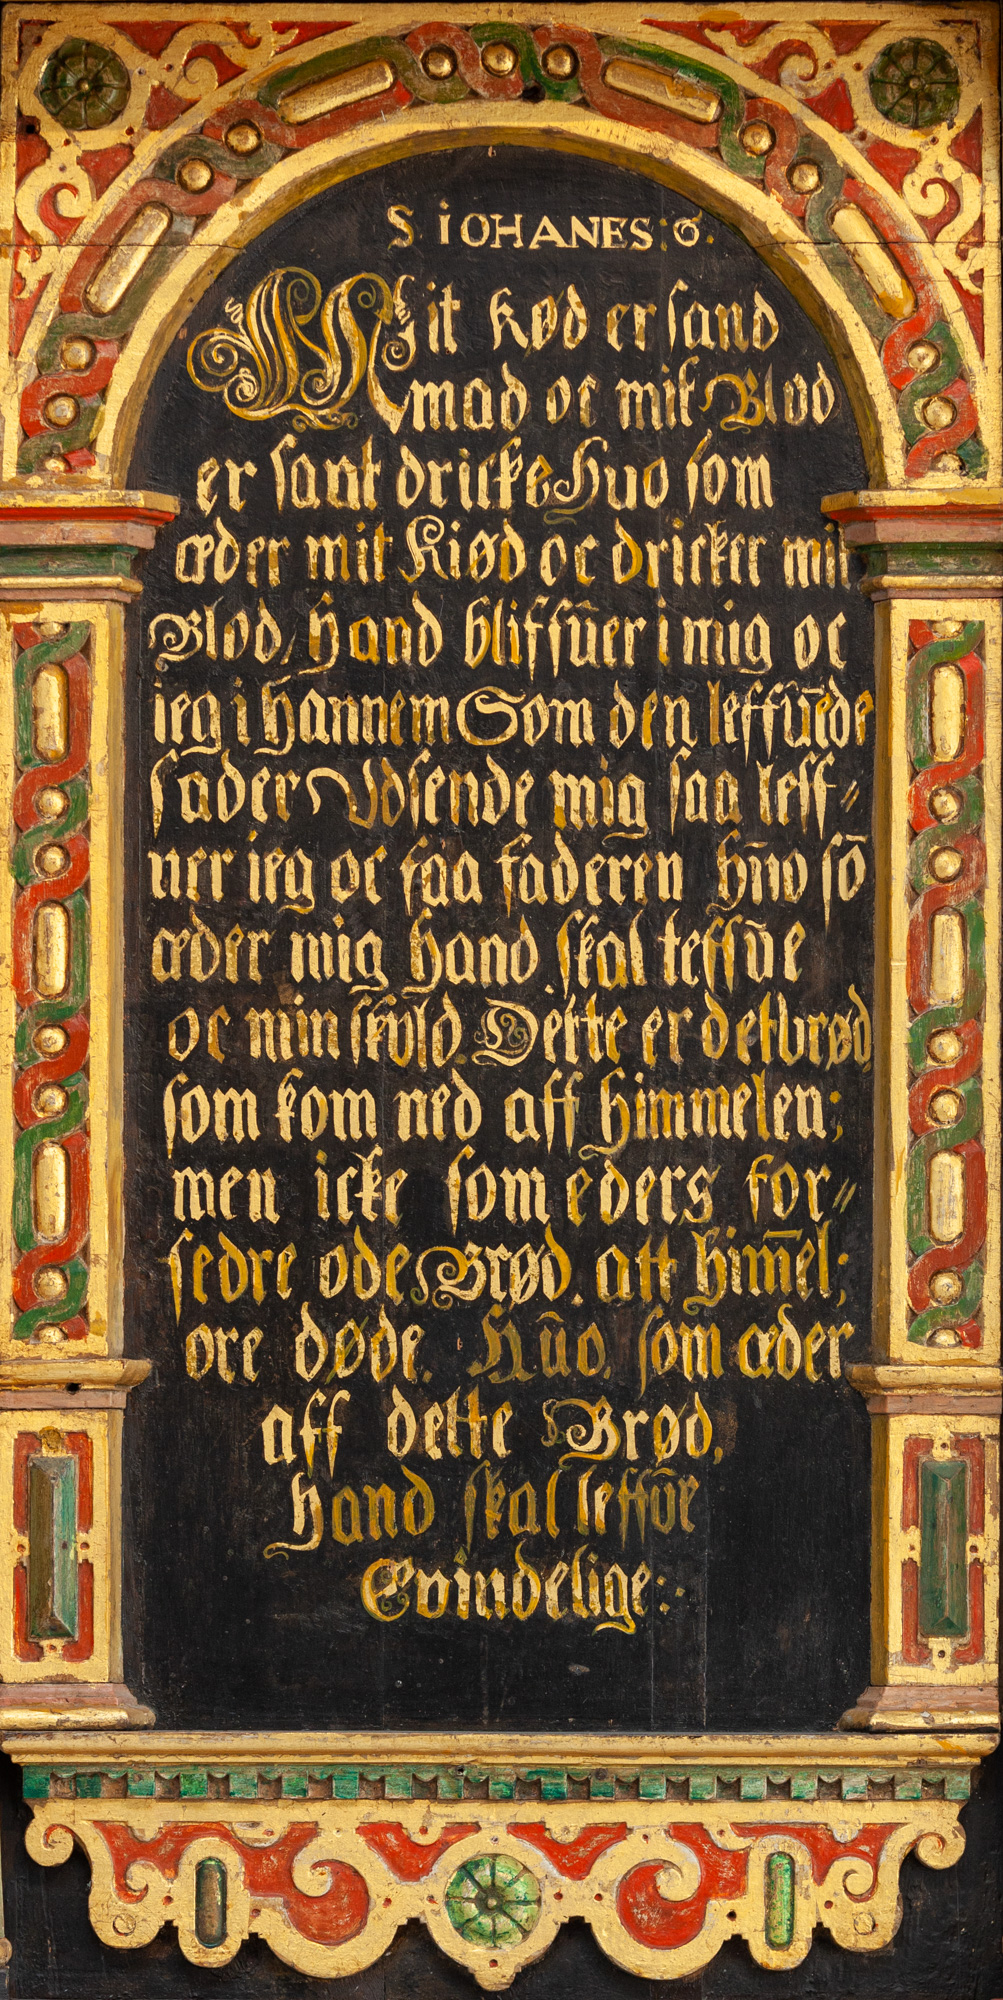 S. iOHANES: 6.
Mit Kød er sand
mad oc mit Blod
er sant dricke Huo som
æder mit Kiød oc dricker mit
Blod, Hand bliffūer i mig oc
ieg i hannem Som den leffūede
fader Vdsende mig saa leff-
uer ieg oc faa faderen hūo sō
æder mig hand skal leffūe
oc min skyld. Dette er det brød,
som kom ned aff himmelen;
men icke som eders for-
fedre ode Brød. att him̄el;
ore døde. Hūo. som æder
aff dette Brød,
Hand skal leffūe
Evindelige: